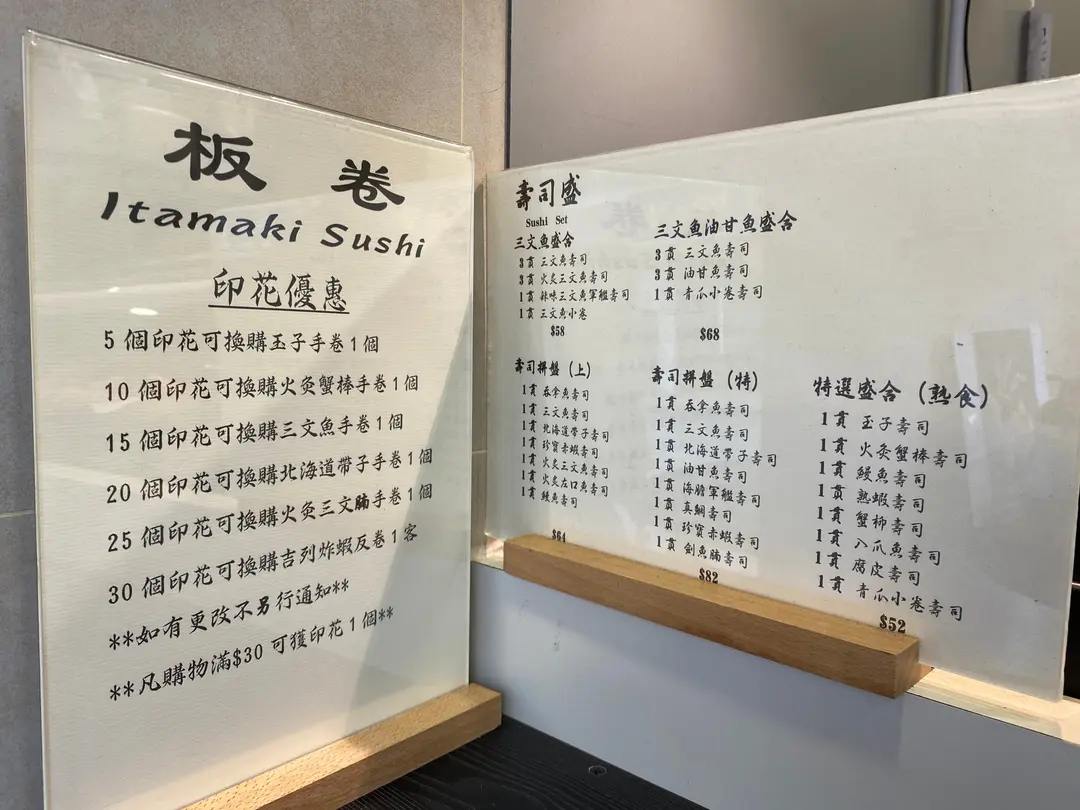 板 卷
Itamaki Sushi
印花優惠
5 個印花可換購玉子手卷1個
10 個印花可換購火灸蟹棒手卷1個
15 個印花可換購三文魚手卷1個
20 個印花可換購北海道帶子手卷1個
25 個印花可換購火灸三文腩手卷1個
30 個印花可換購吉列炸蝦反卷1客
**如有更改不另行通知**
**凡購物滿$30 可獲印花1個**
壽司盛
Sushi Set
三文魚盛舍
3貫 三文魚壽司
3貫 火炙三文魚壽司
1貫 辣味三文魚軍艦壽司
1貫 三文魚小卷
$58
三文魚油甘魚盛舍
3貫 三文魚壽司
3貫 油甘魚壽司
1貫 青瓜小卷壽司
$68
壽司拼盤（上）
1貫 吞拿魚壽司
1貫 三文魚壽司
1貫 北海道帶子壽司
1貫 珍寶赤蝦壽司
1貫 火炙三文魚壽司
1貫 火炙左口魚壽司
1貫 鰻魚壽司
$64
壽司拼盤（特）
1貫 吞拿魚壽司
1貫 三文魚壽司
1貫 北海道帶子壽司
1貫 油甘魚壽司
1貫 海膽軍艦壽司
1貫 真鯛壽司
1貫 珍寶赤蝦壽司
1貫 劍魚腩壽司
$82
特選盛舍（熟食）
1貫 玉子壽司
1貫 火炙蟹棒壽司
1貫 鰻魚壽司
1貫 熟蝦壽司
1貫 蟹柳壽司
1貫 八爪魚壽司
1貫 腐皮壽司
1貫 青瓜小卷壽司
$52